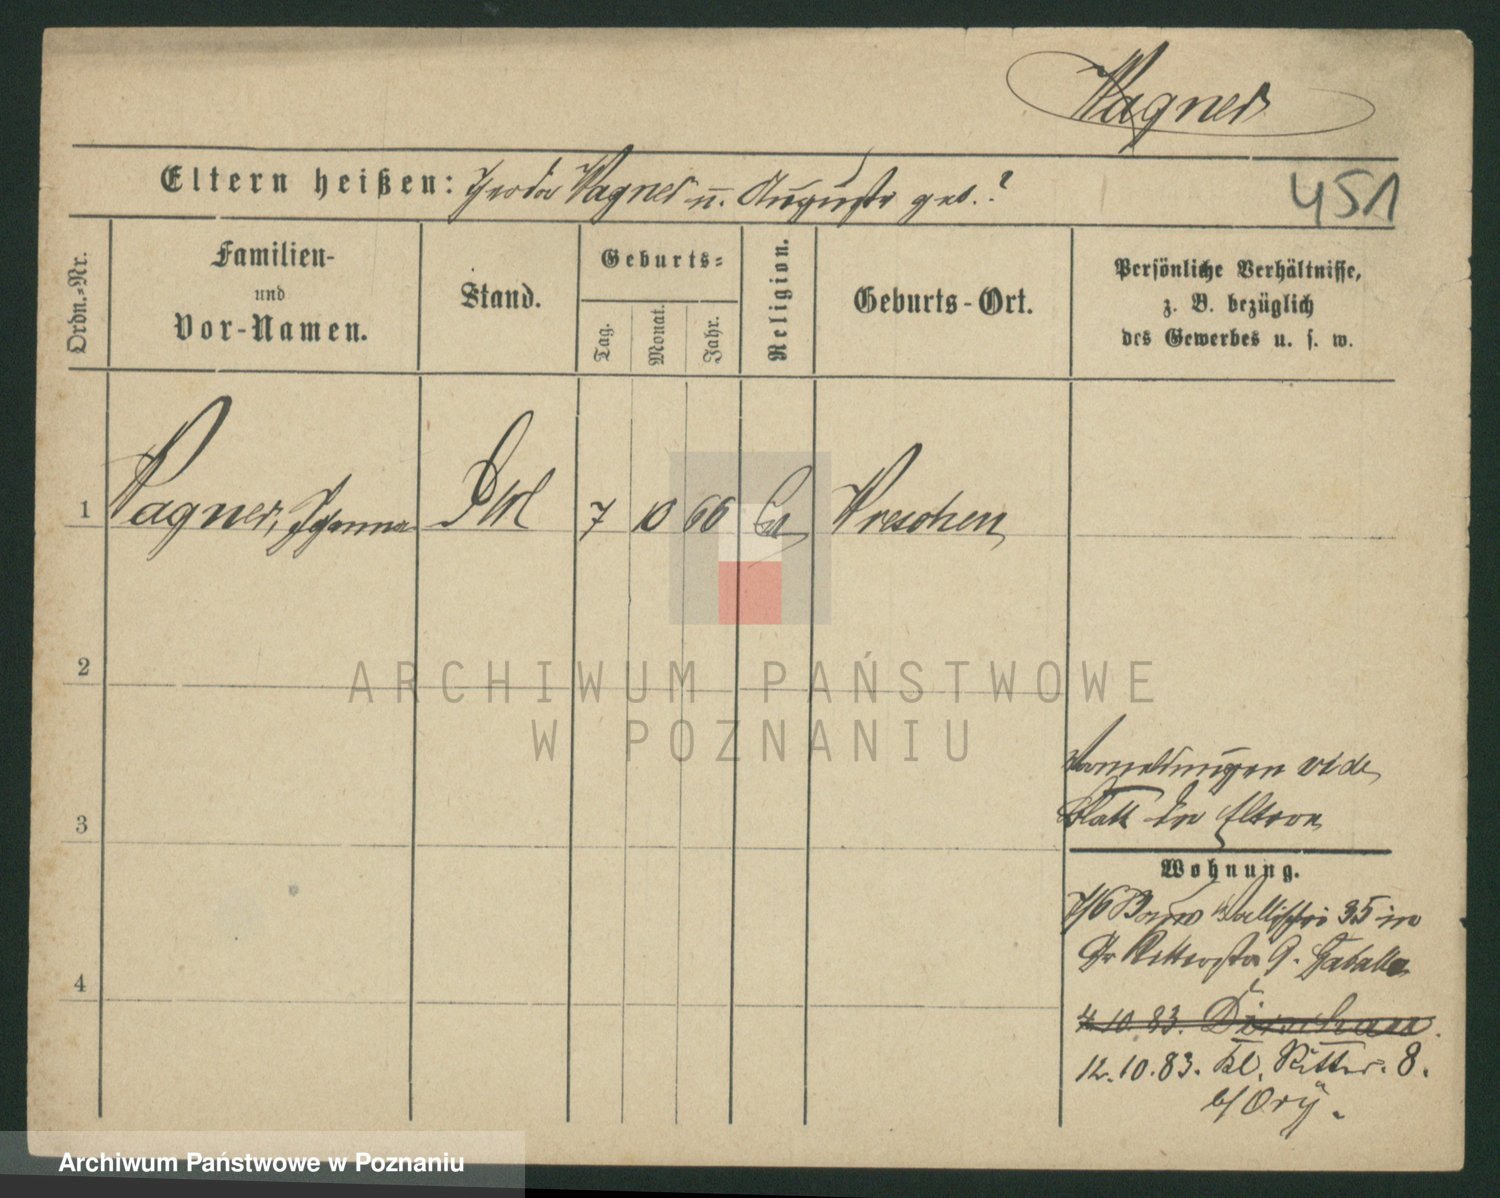 Wagner
Eltern heißen: Wagner u. Auguste geb. ?
451
Ordn.-Nr.
Familien-
und
Vor-Namen.
Stand.
Geburts-
Tag.
Monat.
Jahr.
Religion.
Geburts-Ort.
Persönliche Verhältnisse,
z. B. bezüglich
des Gewerbes u. s. w.
1 Wagner, Johanna 7 10 66 Ev Wreschen
2
ARCHIWUM PAŃSTWOWE
W POZNANIU
vide
3
Blatt der Eltern
Wohnung.
7/6 Wallischei 35 in
Gr Ritterstr 9.
4
4.10.83. Dirschau.
12.10.83. Kl. Ritter. 8.
b/ Ory.
Archiwum Państwowe w Poznaniu